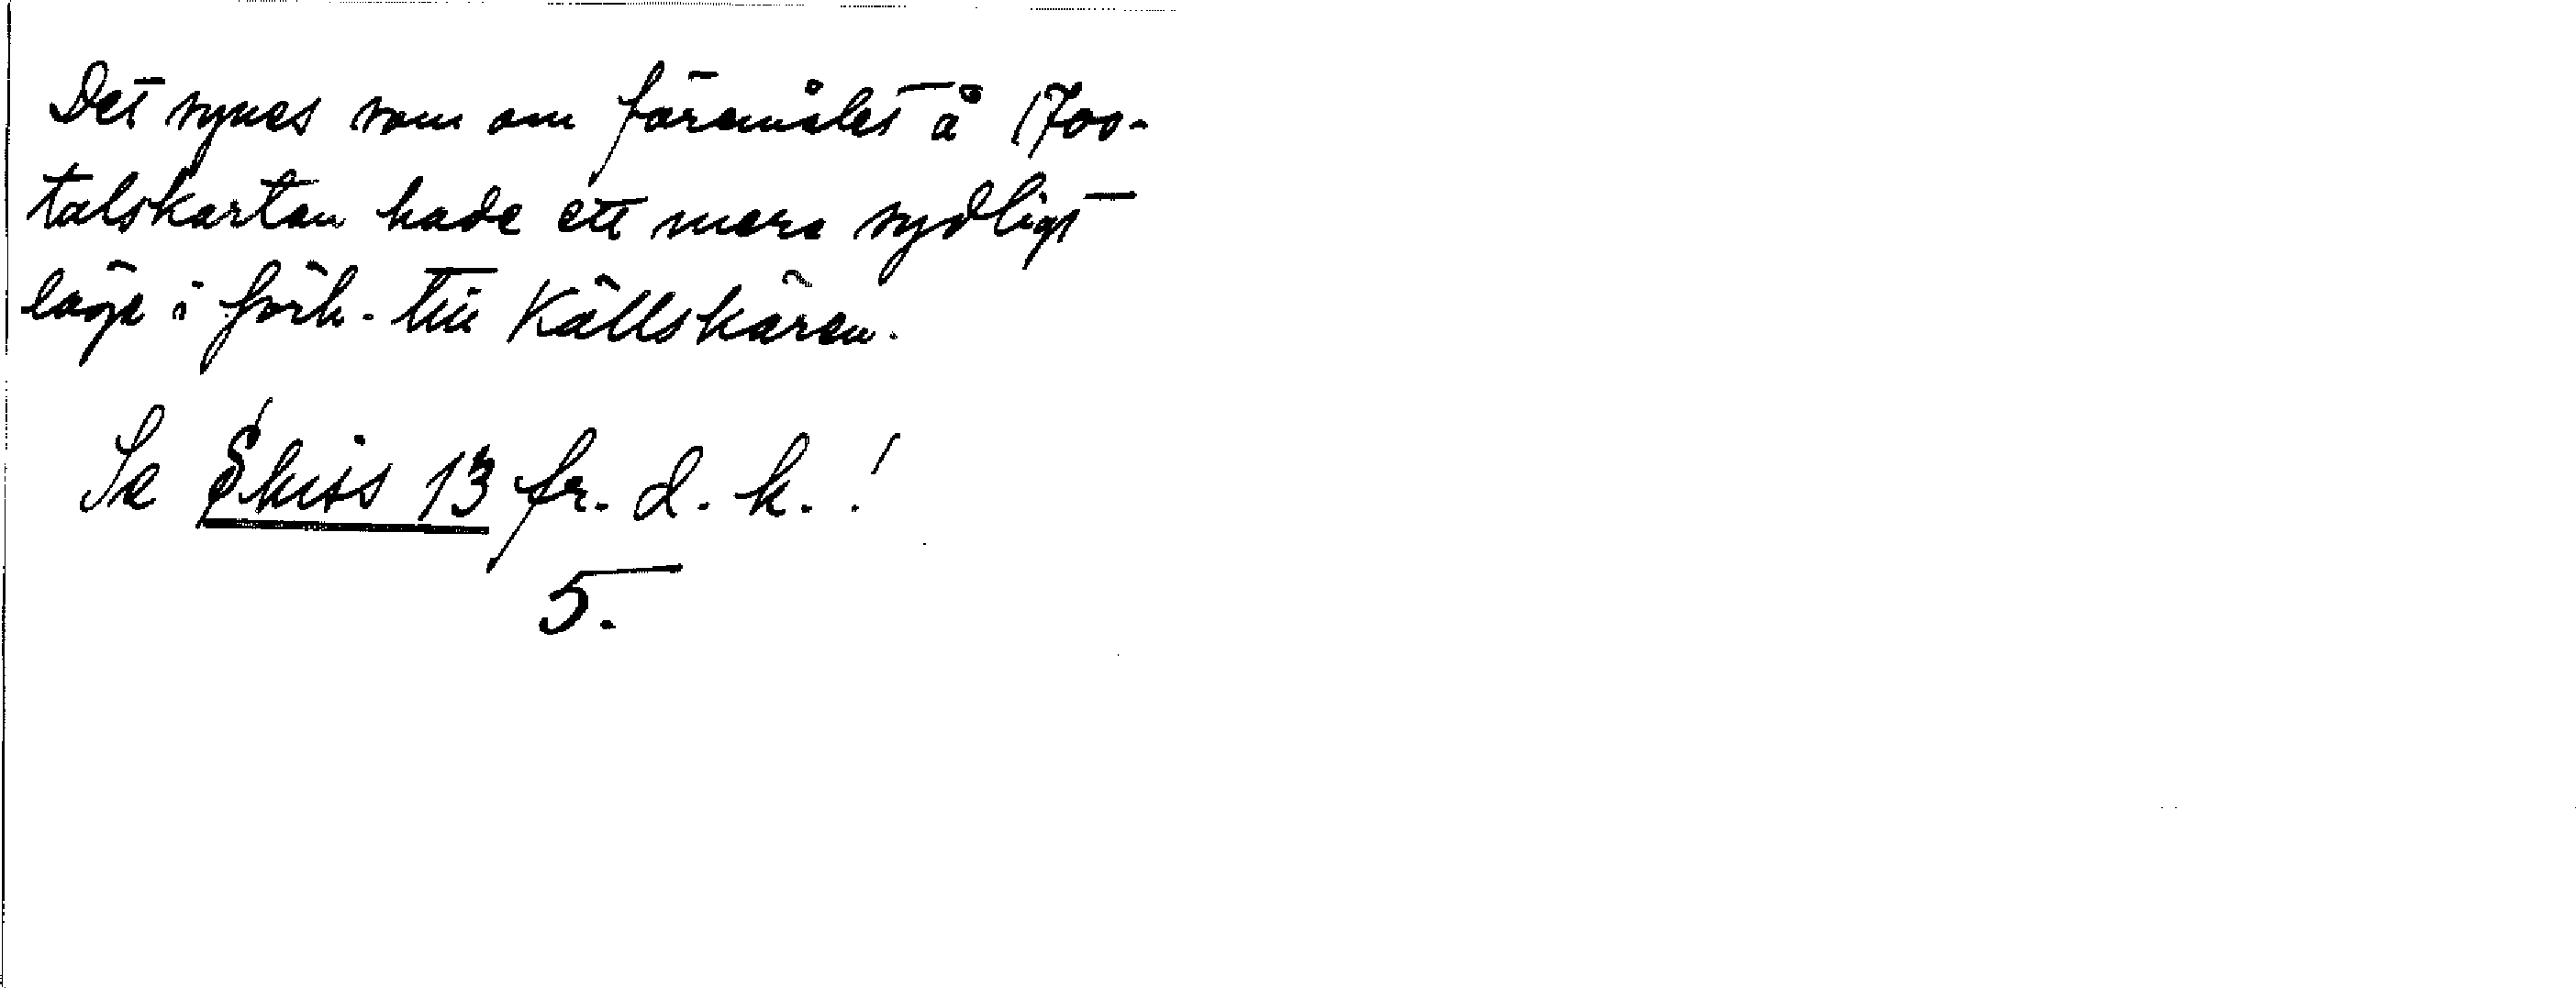 Det synes som om föremålet å 1700-
talskartan hade ett mera sydligt
läge i förh. till Källskären.
Se Skiss 13 fr. d. k.!
5.